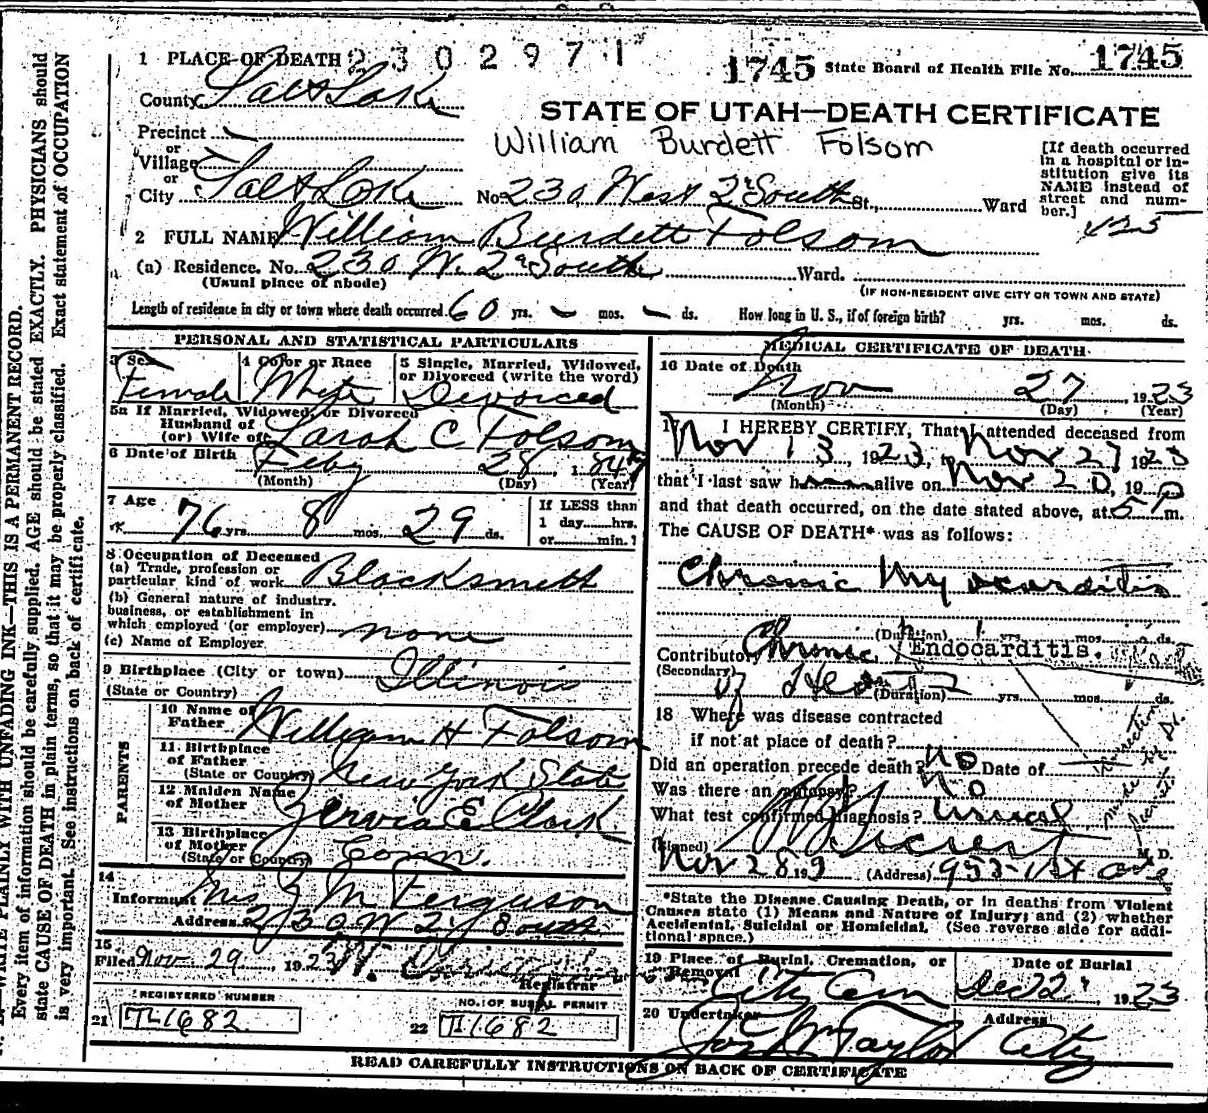 1 PLACE OF DEATH 2302971 1745 State Board of Health File No. 1745
County Salt Lake
STATE OF UTAH—DEATH CERTIFICATE
Precinct
or
Village
or
City Salt Lake No. 230 West 2d South St., Ward
William Burdett Folsom
[If death occurred
in a hospital or in-
stitution give its
NAME instead of
street and num-
ber.]
125
2 FULL NAME William Burdett Folsom
(a) Residence. No. 230 W. 2d South Ward.
(Usual place of abode) (IF NON-RESIDENT GIVE CITY OR TOWN AND STATE)
Length of residence in city or town where death occurred 60 yrs. — mos. — ds. How long in U. S., if of foreign birth? yrs. mos. ds.
PERSONAL AND STATISTICAL PARTICULARS
3 Sex 4 Color or Race 5 Single, Married, Widowed,
or Divorced (write the word)
Female White Divorced
5a If Married, Widowed, or Divorced
Husband of
(or) Wife of Sarah C. Folsom
6 Date of Birth Feby 28, 1847
(Month) (Day) (Year)
7 Age 76 yrs. 8 mos. 29 ds.
If LESS than
1 day......hrs.
or......min.?
8 Occupation of Deceased
(a) Trade, profession or
particular kind of work Blacksmith
(b) General nature of industry,
business, or establishment in
which employed (or employer) none
(c) Name of Employer
9 Birthplace (City or town) Illinois
(State or Country)
PARENTS
10 Name of
Father William H Folsom
11 Birthplace
of Father
(State or Country) New York State
12 Maiden Name
of Mother Zervia E. Clark
13 Birthplace
of Mother
(State or Country) Conn.
14
Informant Mrs Z M Ferguson
Address 230 W 2d South
15
Filed Nov 29, 1923
Registrar
REGISTERED NUMBER NO. OF BURIAL PERMIT
21 TL1682 22 TL1682
MEDICAL CERTIFICATE OF DEATH
16 Date of Death Nov 27, 1923
(Month) (Day) (Year)
17 I HEREBY CERTIFY, That I attended deceased from
Nov 13, 1923, to Nov 27 1923
that I last saw h alive on Nov 20, 19
and that death occurred, on the date stated above, at 5 P m.
The CAUSE OF DEATH* was as follows:
Chronic Myocarditis
(Duration) yrs. mos. ds.
Contributory Chronic Endocarditis.
(Secondary) of Heart (Duration) yrs. mos. ds.
18 Where was disease contracted
if not at place of death?
Did an operation precede death? no Date of
Was there an autopsy? no
What test confirmed diagnosis? usual
(Signed) M. D.
Nov 28 19 (Address) 953-1st ave
*State the Disease Causing Death, or in deaths from Violent
Causes state (1) Means and Nature of Injury; and (2) whether
Accidental, Suicidal or Homicidal. (See reverse side for addi-
tional space.)
19 Place of Burial, Cremation, or
Removal Date of Burial
City Cem Dec 2, 1923
20 Undertaker Address
Jos Wm Taylor City
READ CAREFULLY INSTRUCTIONS ON BACK OF CERTIFICATE
WRITE PLAINLY WITH UNFADING INK—THIS IS A PERMANENT RECORD.
Every item of information should be carefully supplied. AGE should be stated EXACTLY. PHYSICIANS should
state CAUSE OF DEATH in plain terms, so that it may be properly classified. Exact statement of OCCUPATION
is very important. See instructions on back of certificate.